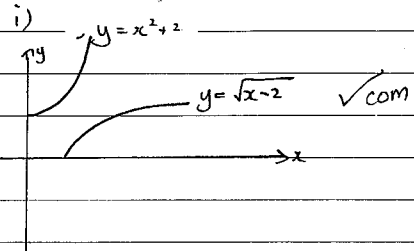 i)
y = x² + 2
y
y = √x-2 ✓ com
x